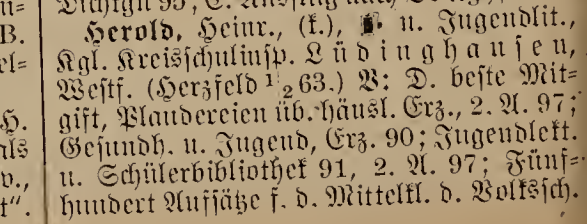 Herold, Heinr., (k.), u. Jugendlit.,
Kgl. Kreisschulinsp. Lüdinghausen,
Westf. (Herzfeld 1/2 63.) V: D. beste Mit-
gift, Plaudereien üb. häusl. Erz., 2. A. 97;
Gesundh. u. Jugend, Erz. 90; Jugendlekt.
u. Schülerbibliothek 91, 2. A. 97; Fünf-
hundert Aufsätze f. d. Mittelkl. d. Volkssch.